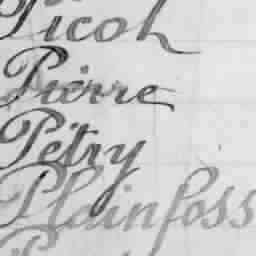 Picot
Pierre
Pétry
Plainfoss